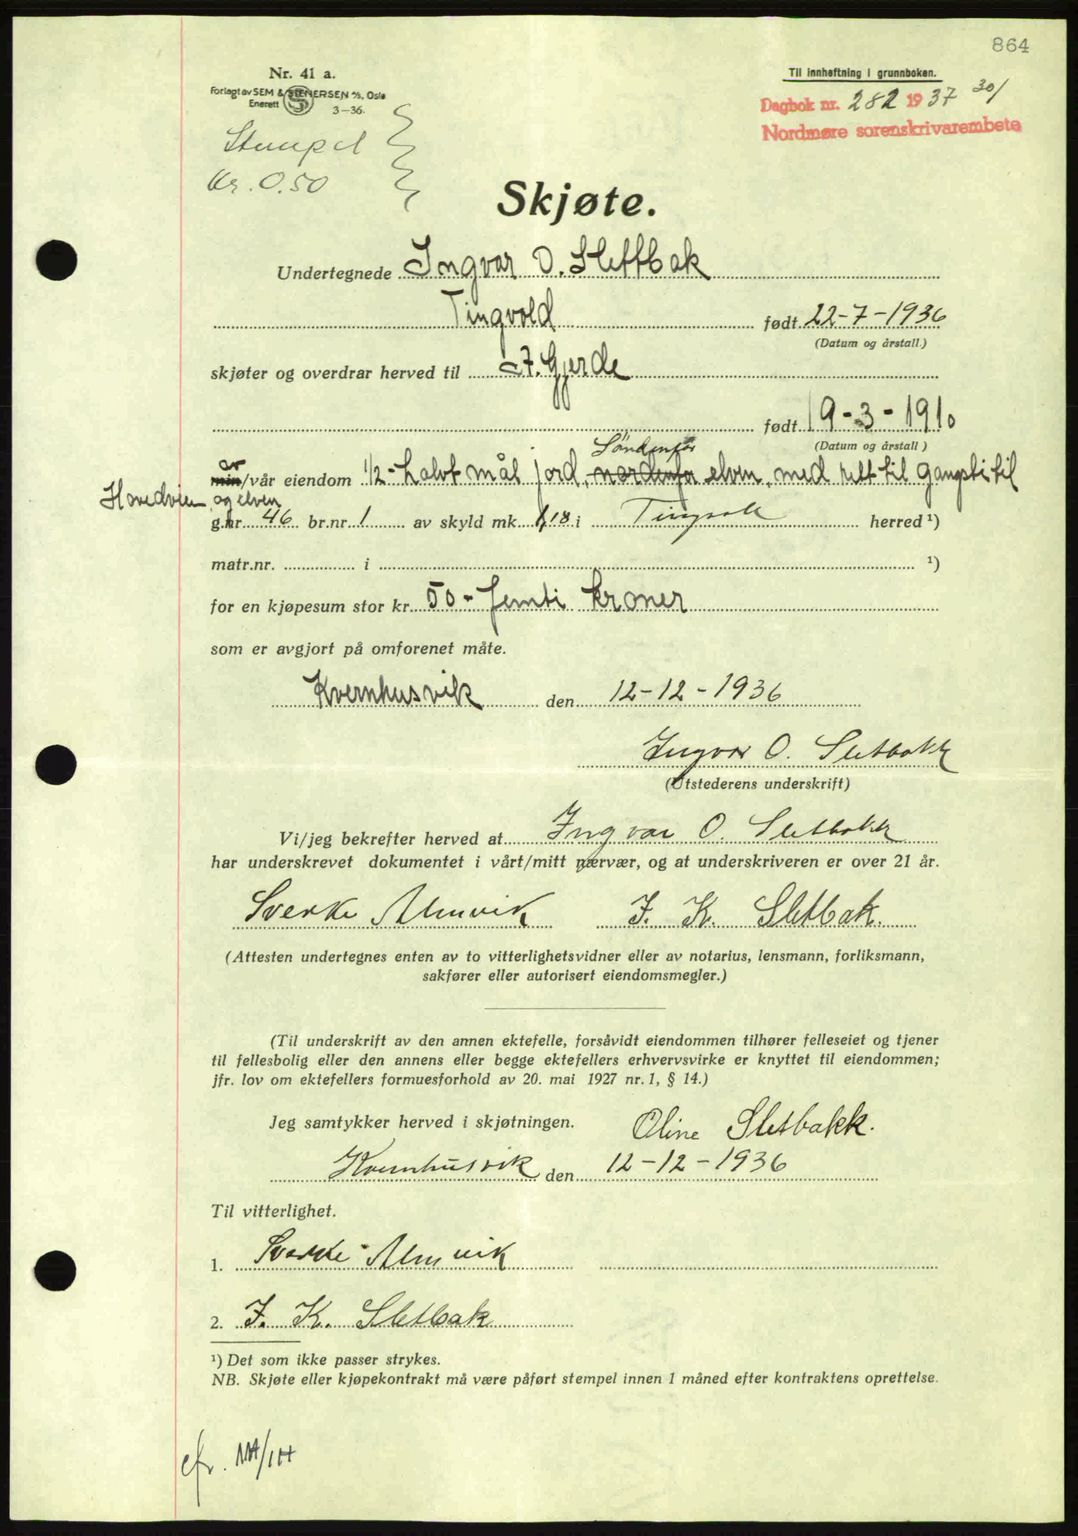 864
Nr. 41 a.
Forlagt av SEM & STENERSEN A/S, Oslo
Enerett
3-36.
Til innheftning i grunnboken.
Dagbok nr. 282 1937 30/1
Nordmøre sorenskrivarembete
Stempel
Kr. 0.50
Skjøte.
Undertegnede Ingvar O. Slettbak
Tingvold født 22-7-1936
(Datum og årstall.)
skjøter og overdrar herved til Gjerde
født 19-3-1910
(Datum og årstall)
Söndenfor
av
min/vår eiendom 1/2- halvt mål jord, nordenfor elven, med rett til gangsti til
Hovedveien og elven
g.nr 46 br.nr. 1 av skyld mk. 1,18 i herred ¹)
matr.nr. i ¹)
for en kjøpesum stor kr. 50- femti kroner
som er avgjort på omforenet måte.
Kvernhusvik den 12-12-1936
Ingvar O. Sletbakk
(Utstederens underskrift)
Vi/jeg bekrefter herved at Ingvar O. Sletbakk
har underskrevet dokumentet i vårt/mitt nærvær, og at underskriveren er over 21 år.
Sverke Almvik J. K. Sletbak.
(Attesten undertegnes enten av to vitterlighetsvidner eller av notarius, lensmann, forliksmann,
sakfører eller autorisert eiendomsmegler.)
(Til underskrift av den annen ektefelle, forsåvidt eiendommen tilhører felleseiet og tjener
til fellesbolig eller den annens eller begge ektefellers erhvervsvirke er knyttet til eiendommen;
jfr. lov om ektefellers formuesforhold av 20. mai 1927 nr. 1, § 14.)
Jeg samtykker herved i skjøtningen. Oline Sletbakk.
Kvernhusvik den 12-12-1936
Til vitterlighet.
1. Sverke Almvik
2. J. K. Sletbak
¹) Det som ikke passer strykes.
NB. Skjøte eller kjøpekontrakt må være påført stempel innen 1 måned efter kontraktens oprettelse.